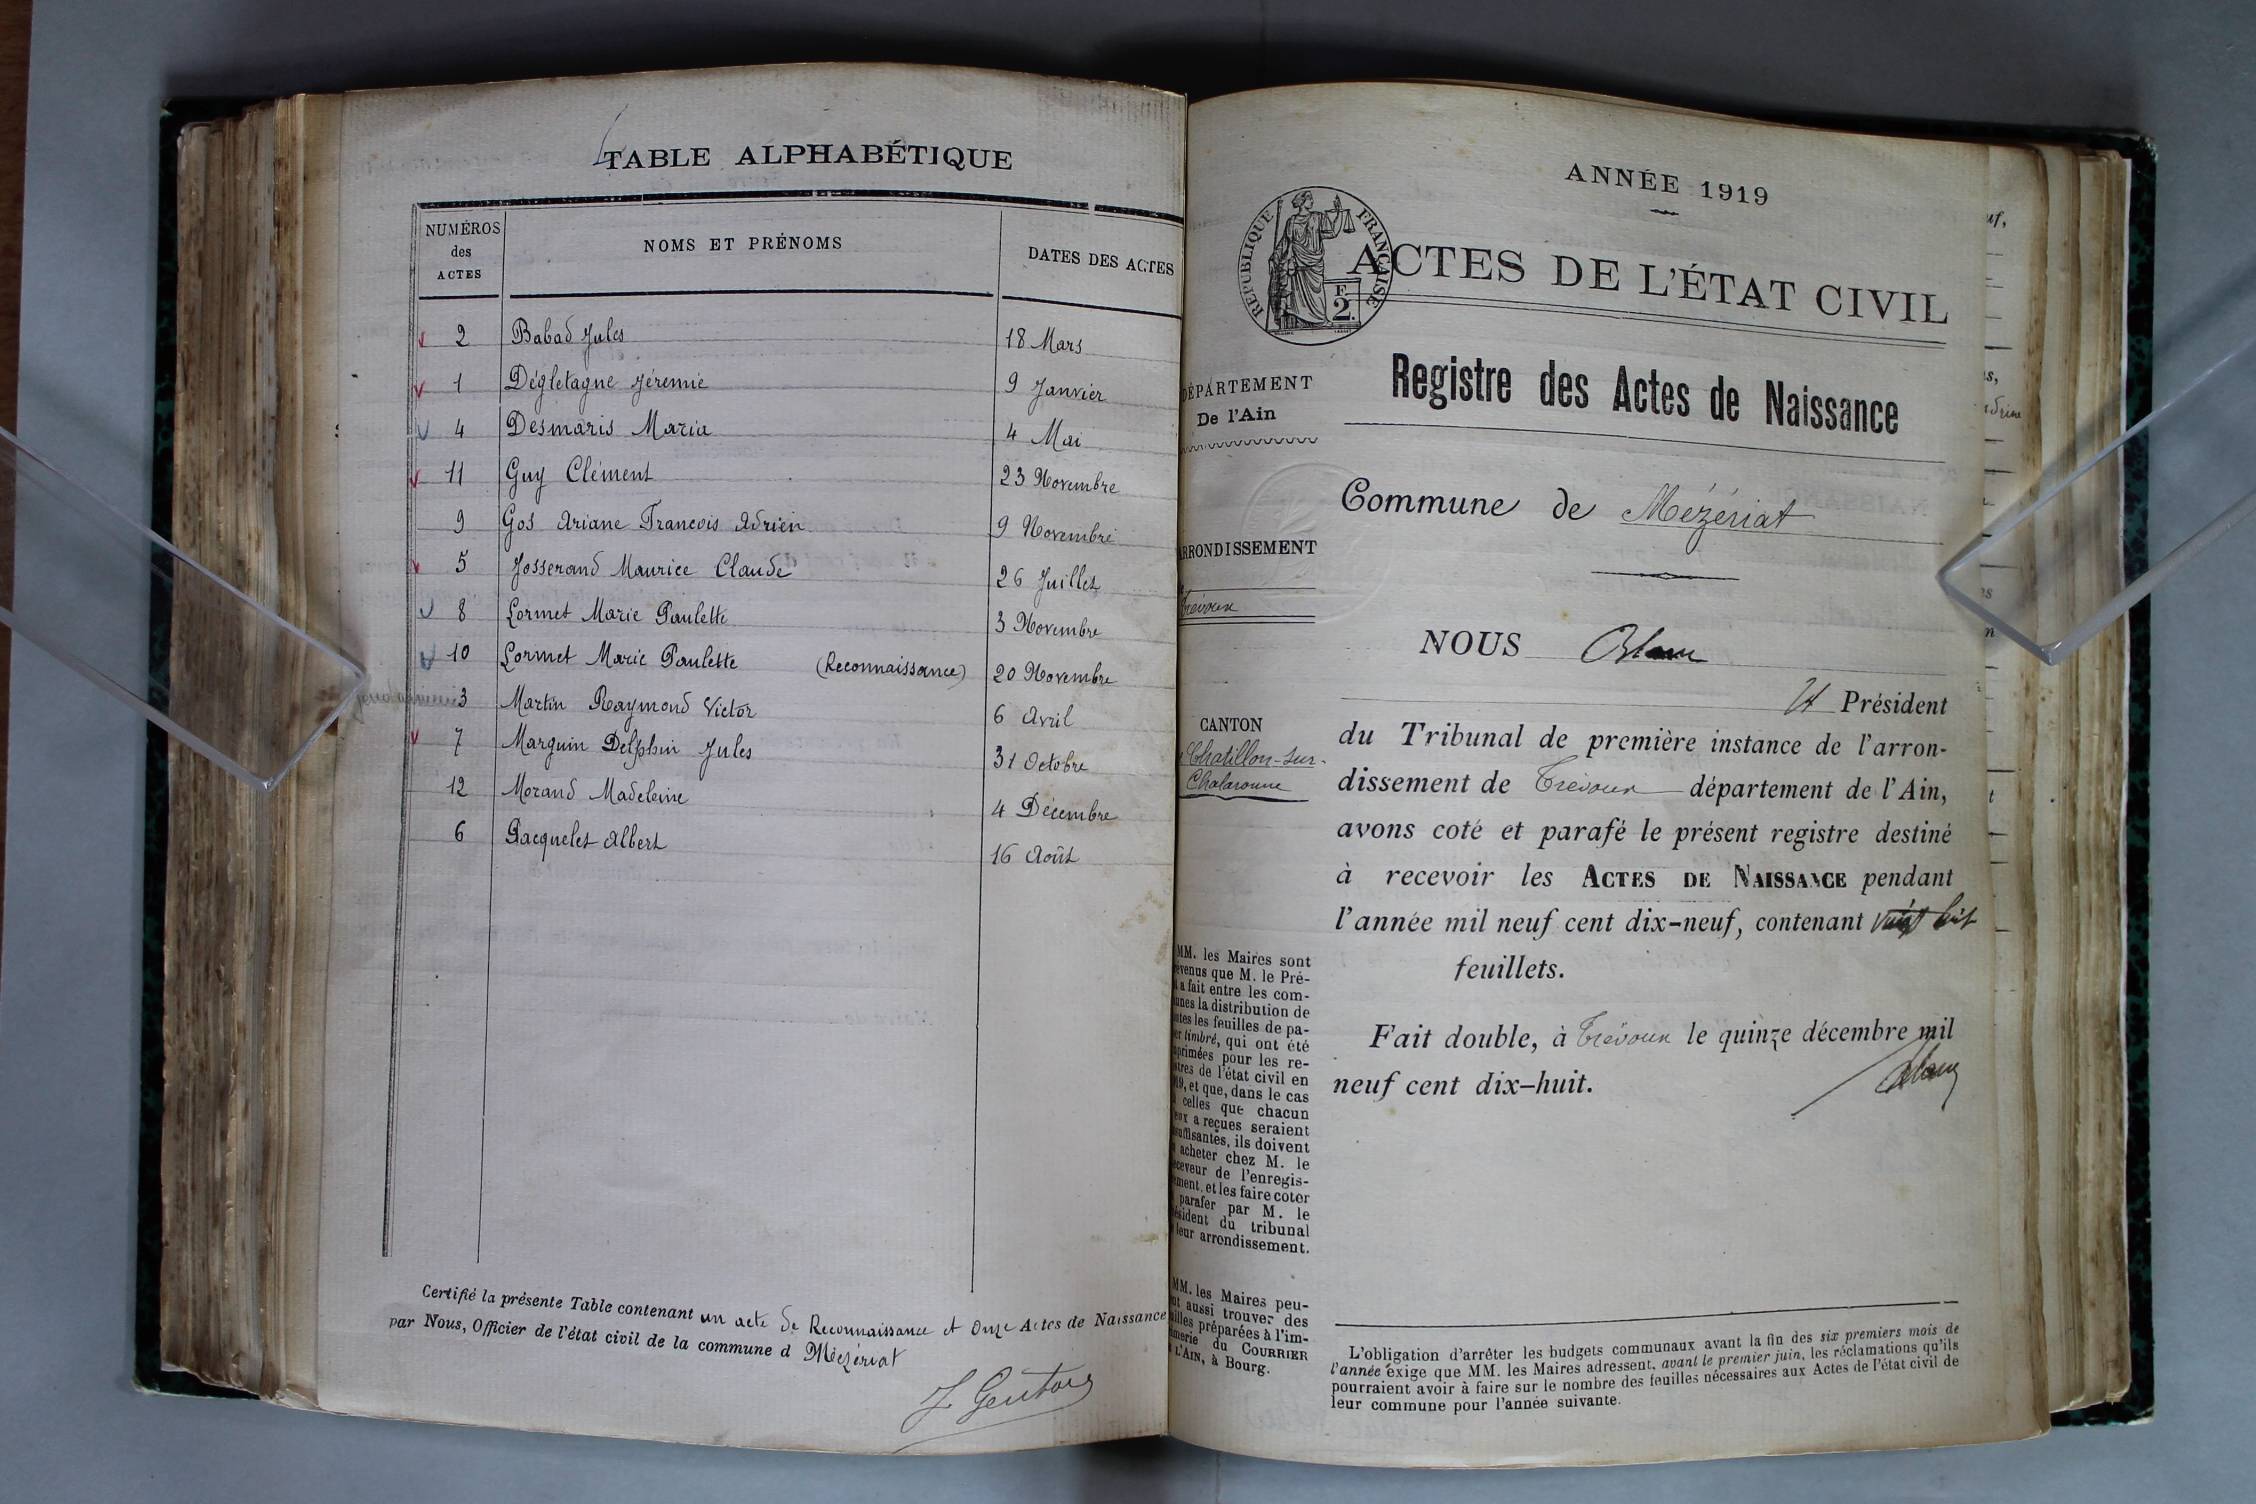 TABLE ALPHABÉTIQUE
NUMÉROS des ACTES NOMS ET PRÉNOMS DATES DES ACTES
2 Babad Jules 18 Mars
1 Dégletagne Jéremie 9 Janvier
4 Desmaris Maria 4 Mai
11 Guy Clément 23 Novembre
9 Gos Ariane Francois Adrien 9 Novembre
5 Josserand Maurice Claude 26 Juillet
8 Lormet Marie Paulette 3 Novembre
10 Lormet Marie Paulette (Reconnaissance) 20 Novembre
3 Martin Raymond Victor 6 Avril
7 Marguin Delphin Jules 31 Octobre
12 Morand Madeleine 4 Décembre
6 Pacquelet Albert 16 Août
Certifié la présente Table contenant un acte de Reconnaissance et Onze Actes de Naissance
par Nous, Officier de l'état civil de la commune d Mézériat
ANNÉE 1919
RÉPUBLIQUE FRANÇAISE
F.
2.
ACTES DE L'ÉTAT CIVIL
Registre des Actes de Naissance
DÉPARTEMENT
De l'Ain
Commune de Mézériat
ARRONDISSEMENT
Trévoux
NOUS
Président
CANTON
Chatillon-sur-
Chalaronne
du Tribunal de première instance de l'arron-
dissement de Trévoux département de l'Ain,
avons coté et parafé le présent registre destiné
à recevoir les ACTES DE NAISSANCE pendant
l'année mil neuf cent dix-neuf, contenant
feuillets.
Fait double, à Trévoux le quinze décembre mil
neuf cent dix-huit.
MM. les Maires sont
prévenus que M. le Pré-
a fait entre les com-
munes la distribution de
toutes les feuilles de pa-
timbré, qui ont été
imprimées pour les re-
gistres de l'état civil en
1919, et que, dans le cas
celles que chacun
d'eux a reçues seraient
insuffisantes, ils doivent
acheter chez M. le
receveur de l'enregis-
trement, et les faire coter
parafer par M. le
président du tribunal
leur arrondissement.
MM. les Maires peu-
vent aussi trouver des
feuilles préparées à l'im-
primerie du COURRIER
L'AIN, à Bourg.
L'obligation d'arrêter les budgets communaux avant la fin des six premiers mois de
l'année exige que MM. les Maires adressent, avant le premier juin, les réclamations qu'ils
pourraient avoir à faire sur le nombre des feuilles nécessaires aux Actes de l'état civil de
leur commune pour l'année suivante.